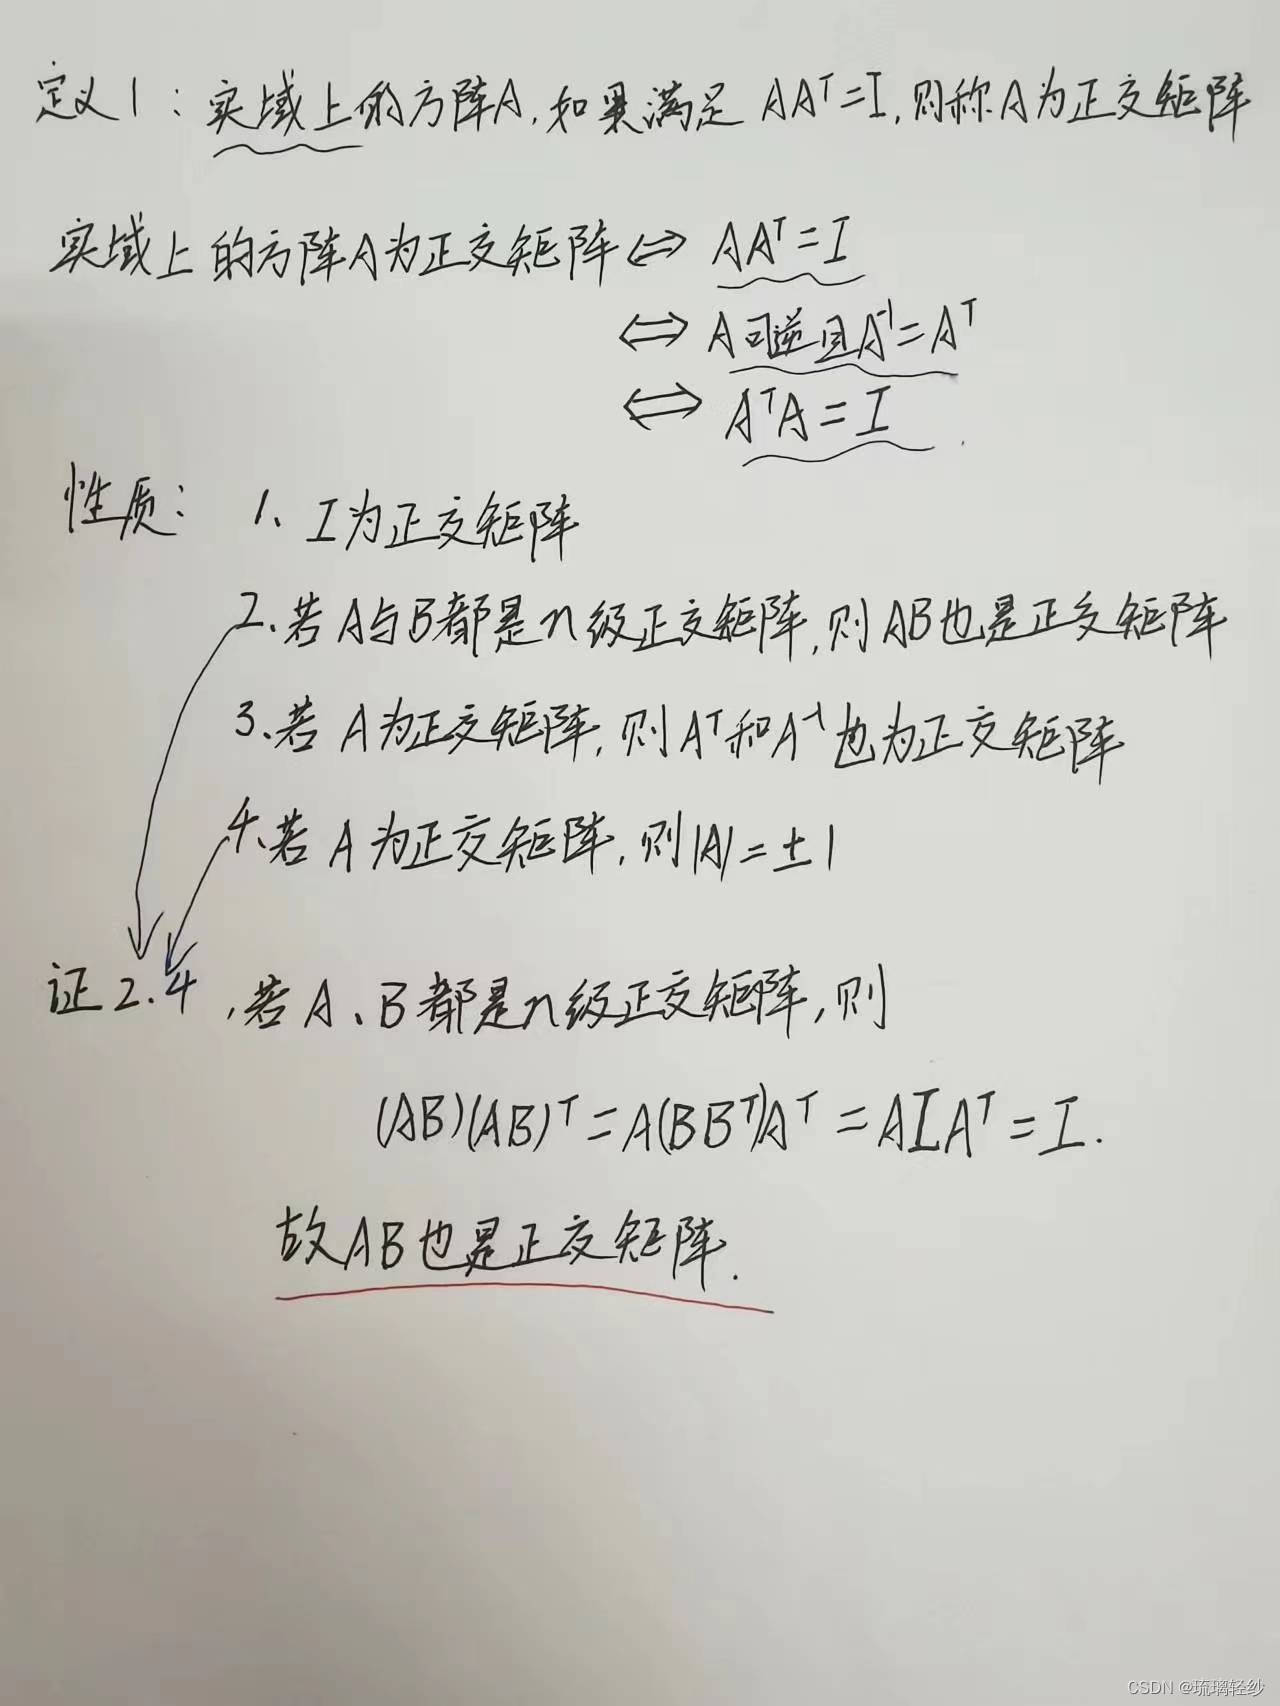 定义1：实域上的方阵A，如果满足 AAᵀ=I，则称A为正交矩阵
实域上的方阵A为正交矩阵⇔ AAᵀ=I
⇔ A可逆且A⁻¹=Aᵀ
⇔ AᵀA=I
性质： 1、I为正交矩阵
2、若A与B都是n级正交矩阵，则AB也是正交矩阵
3、若A为正交矩阵，则Aᵀ和A⁻¹也为正交矩阵
4、若A为正交矩阵，则|A|=±1
证2.4，若A、B都是n级正交矩阵，则
(AB)(AB)ᵀ=A(BBᵀ)Aᵀ=AIAᵀ=I.
故AB也是正交矩阵.
CSDN @琉璃轻纱